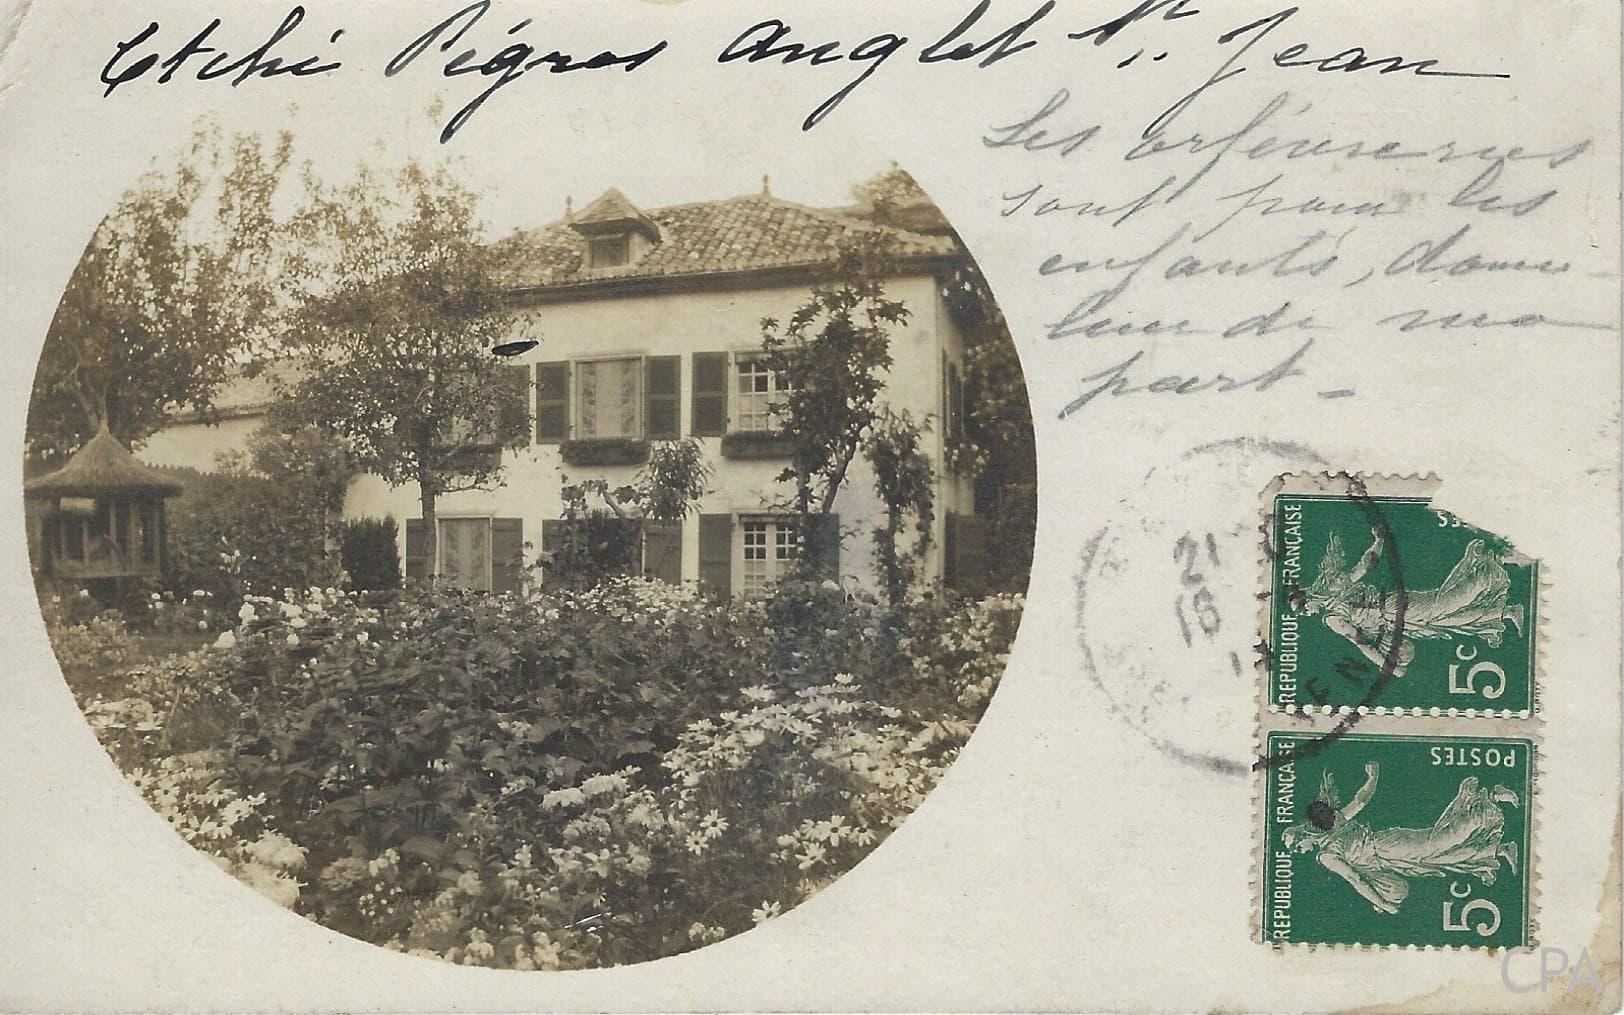 Etché Pégros Anglet St Jean
Les orfévreries
sont pour les
enfants, donne-
leur de ma
part -
21
16
REPUBLIQUE FRANÇAISE
5c
REPUBLIQUE FRANÇAISE
POSTES
5c
CPA